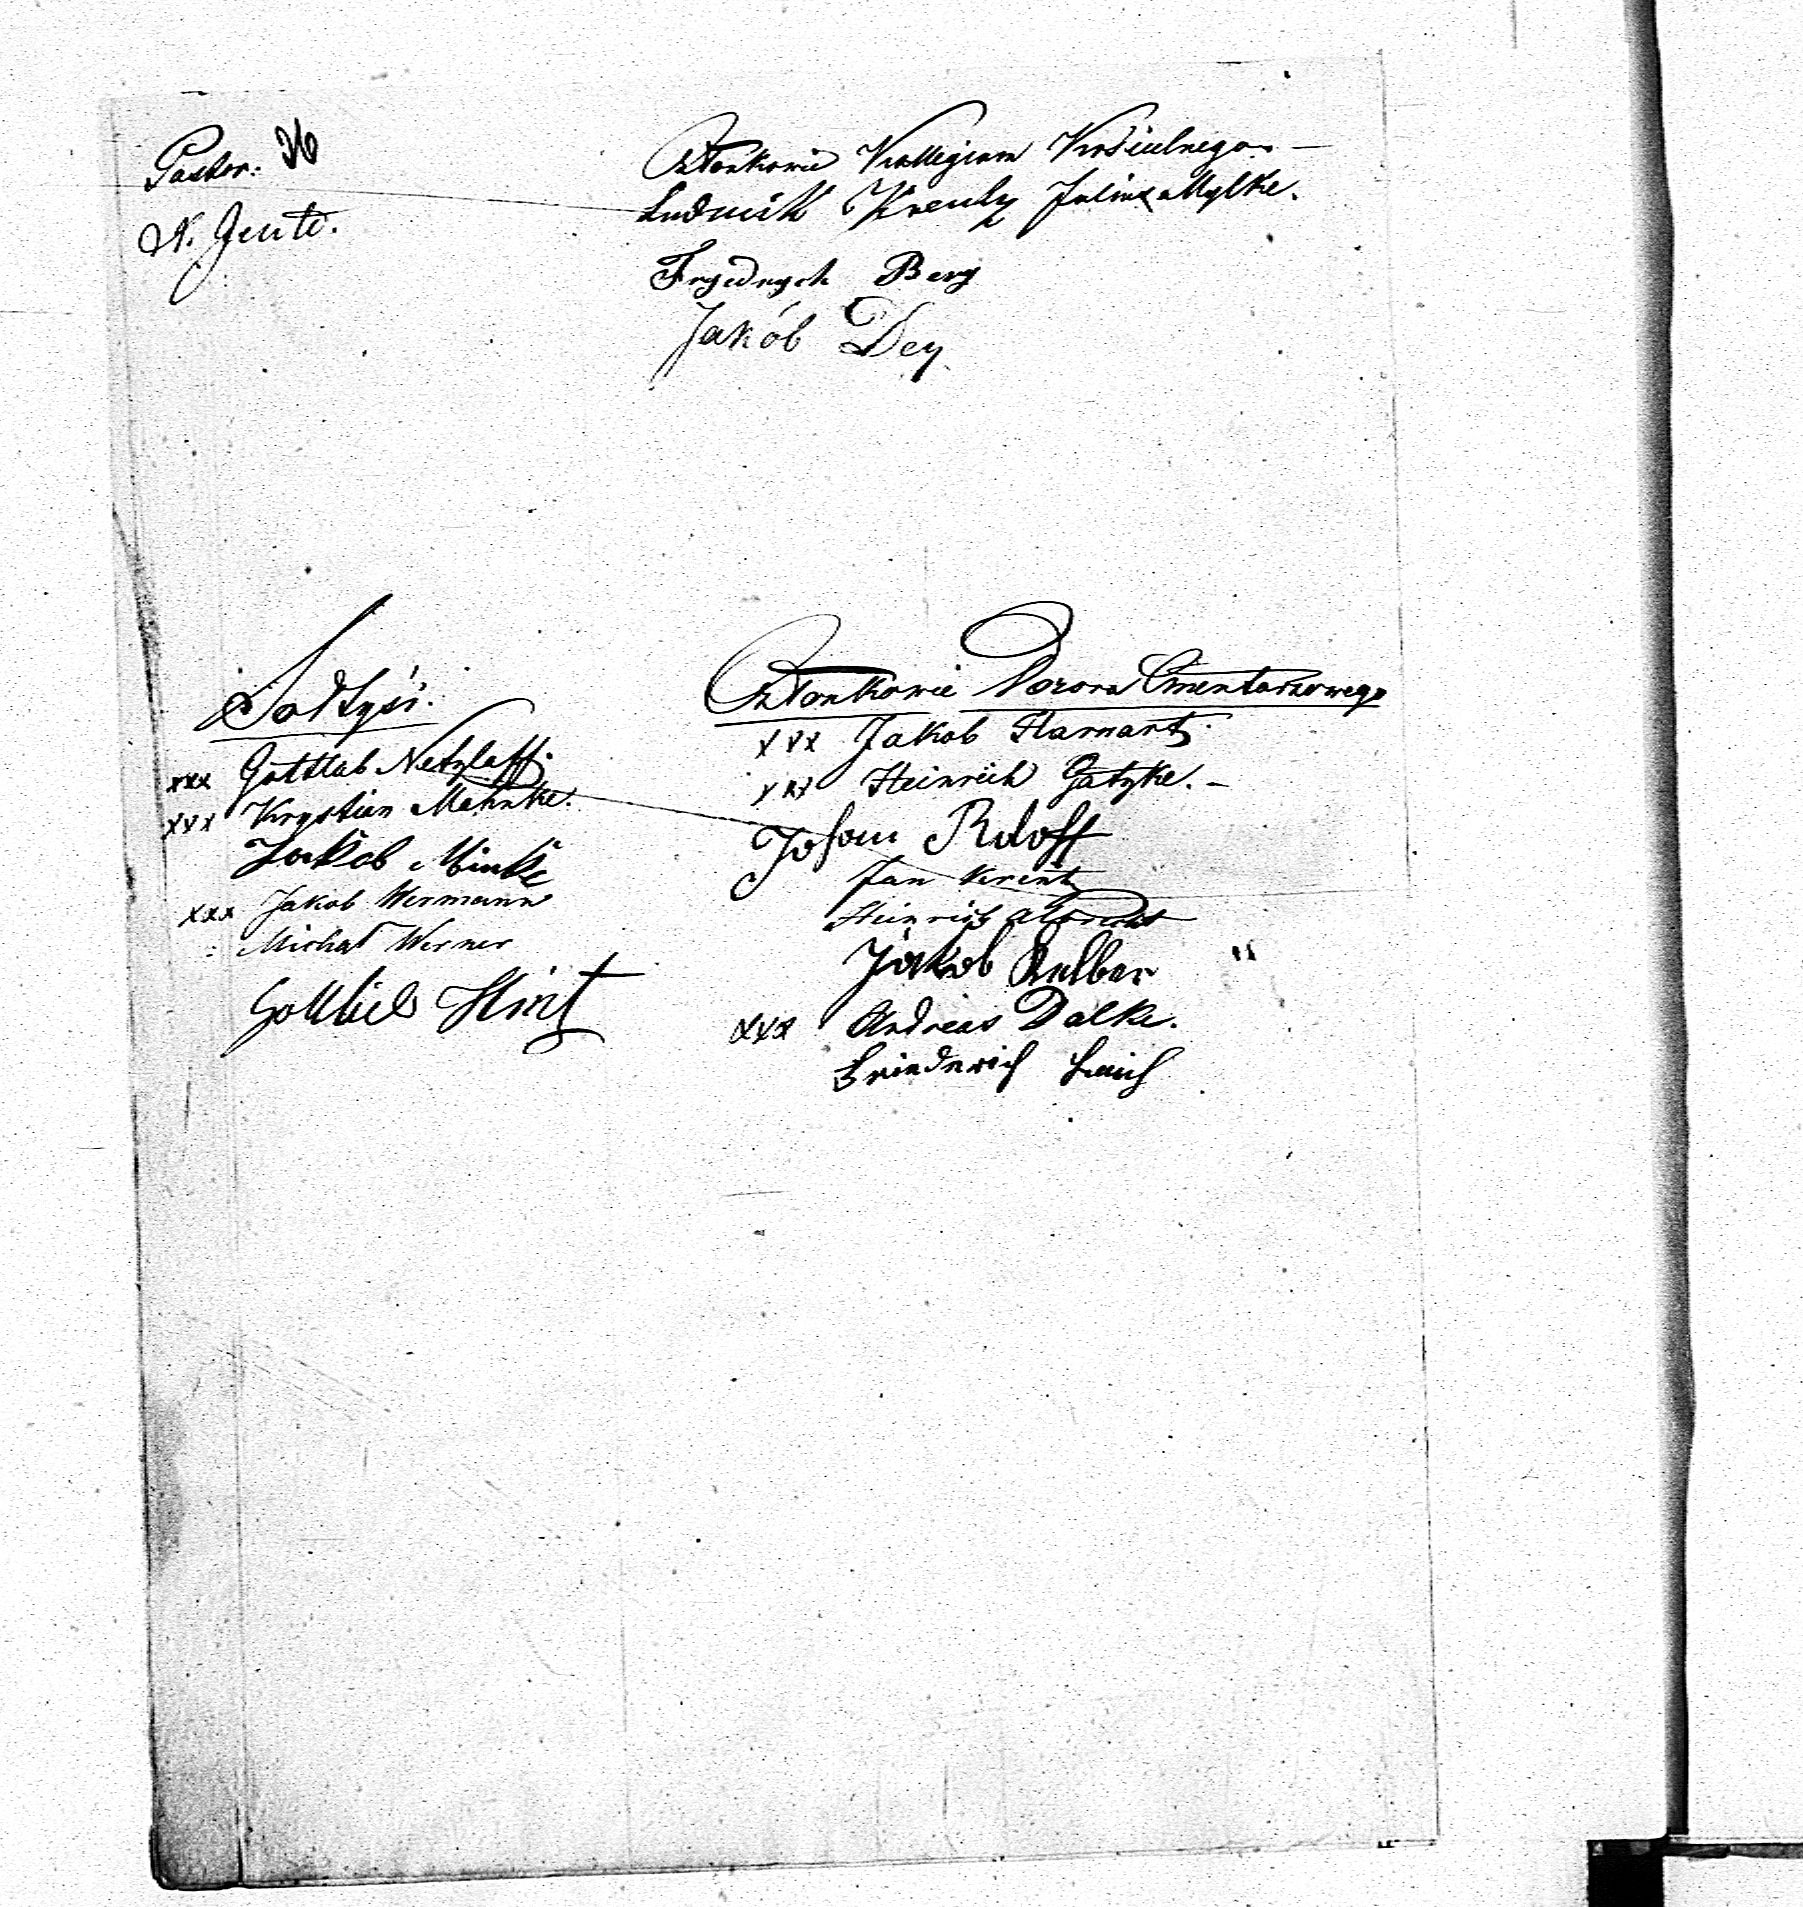 Pastor:
N. Gente.
Członkowie Kollegium Kościelnego. —
Ludwik Kreutz Juliusz Mylke.
Frydrych Berg
Jakób Dey
Sołtysi.
xxx Gottlab Netzlaff.
xxx Krystian Mahnke.
Jakob Minke
xxx Jakob Wermann
Michał Werner
Gottlieb Hint
Członkowie Dozoru Cmentarzowego
xxx Jakob Harnart.
xxx Heinrich Gatzke. —
Johan Roloff
Jan Krentz
Heinrich Albrecht
Jakob
xxx Andreas Dalke.
Friedrich